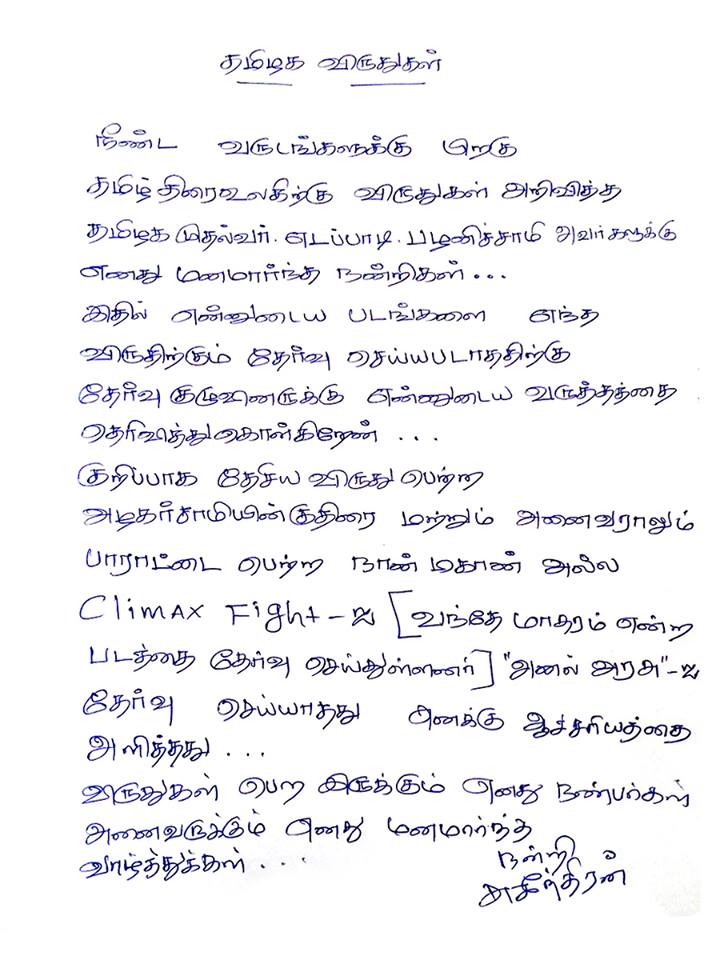 தமிழக விருதுகள்
நீண்ட வருடங்களுக்கு பிறகு
தமிழ் திரைஉலகிற்கு விருதுகள் அறிவித்த
தமிழக முதல்வர். எடப்பாடி. பழனிச்சாமி அவர்களுக்கு
எனது மனமார்ந்த நன்றிகள் ...
இதில் என்னுடைய படங்களை எந்த
விருதிற்கும் தேர்வு செய்யபடாததிற்கு
தேர்வு குழுவினருக்கு என்னுடைய வருத்தத்தை
தெரிவித்து கொள்கிறேன் ...
குறிப்பாக தேசிய விருது பெற்ற
அழகர்சாமியின் குதிரை மற்றும் அனைவராலும்
பாராட்டை பெற்ற நான் மகான் அல்ல
CLiMAX Fight-ஐ [வந்தே மாதரம் என்ற
படத்தை தேர்வு செய்துள்ளனர்] "அனல் அரசு"-ஐ
தேர்வு செய்யாதது எனக்கு ஆச்சரியத்தை
அளித்தது ...
விருதுகள் பெற இருக்கும் எனது நண்பர்கள்
அனைவருக்கும் எனது மனமார்ந்த
வாழ்த்துக்கள் ...
நன்றி
சுசீந்திரன்